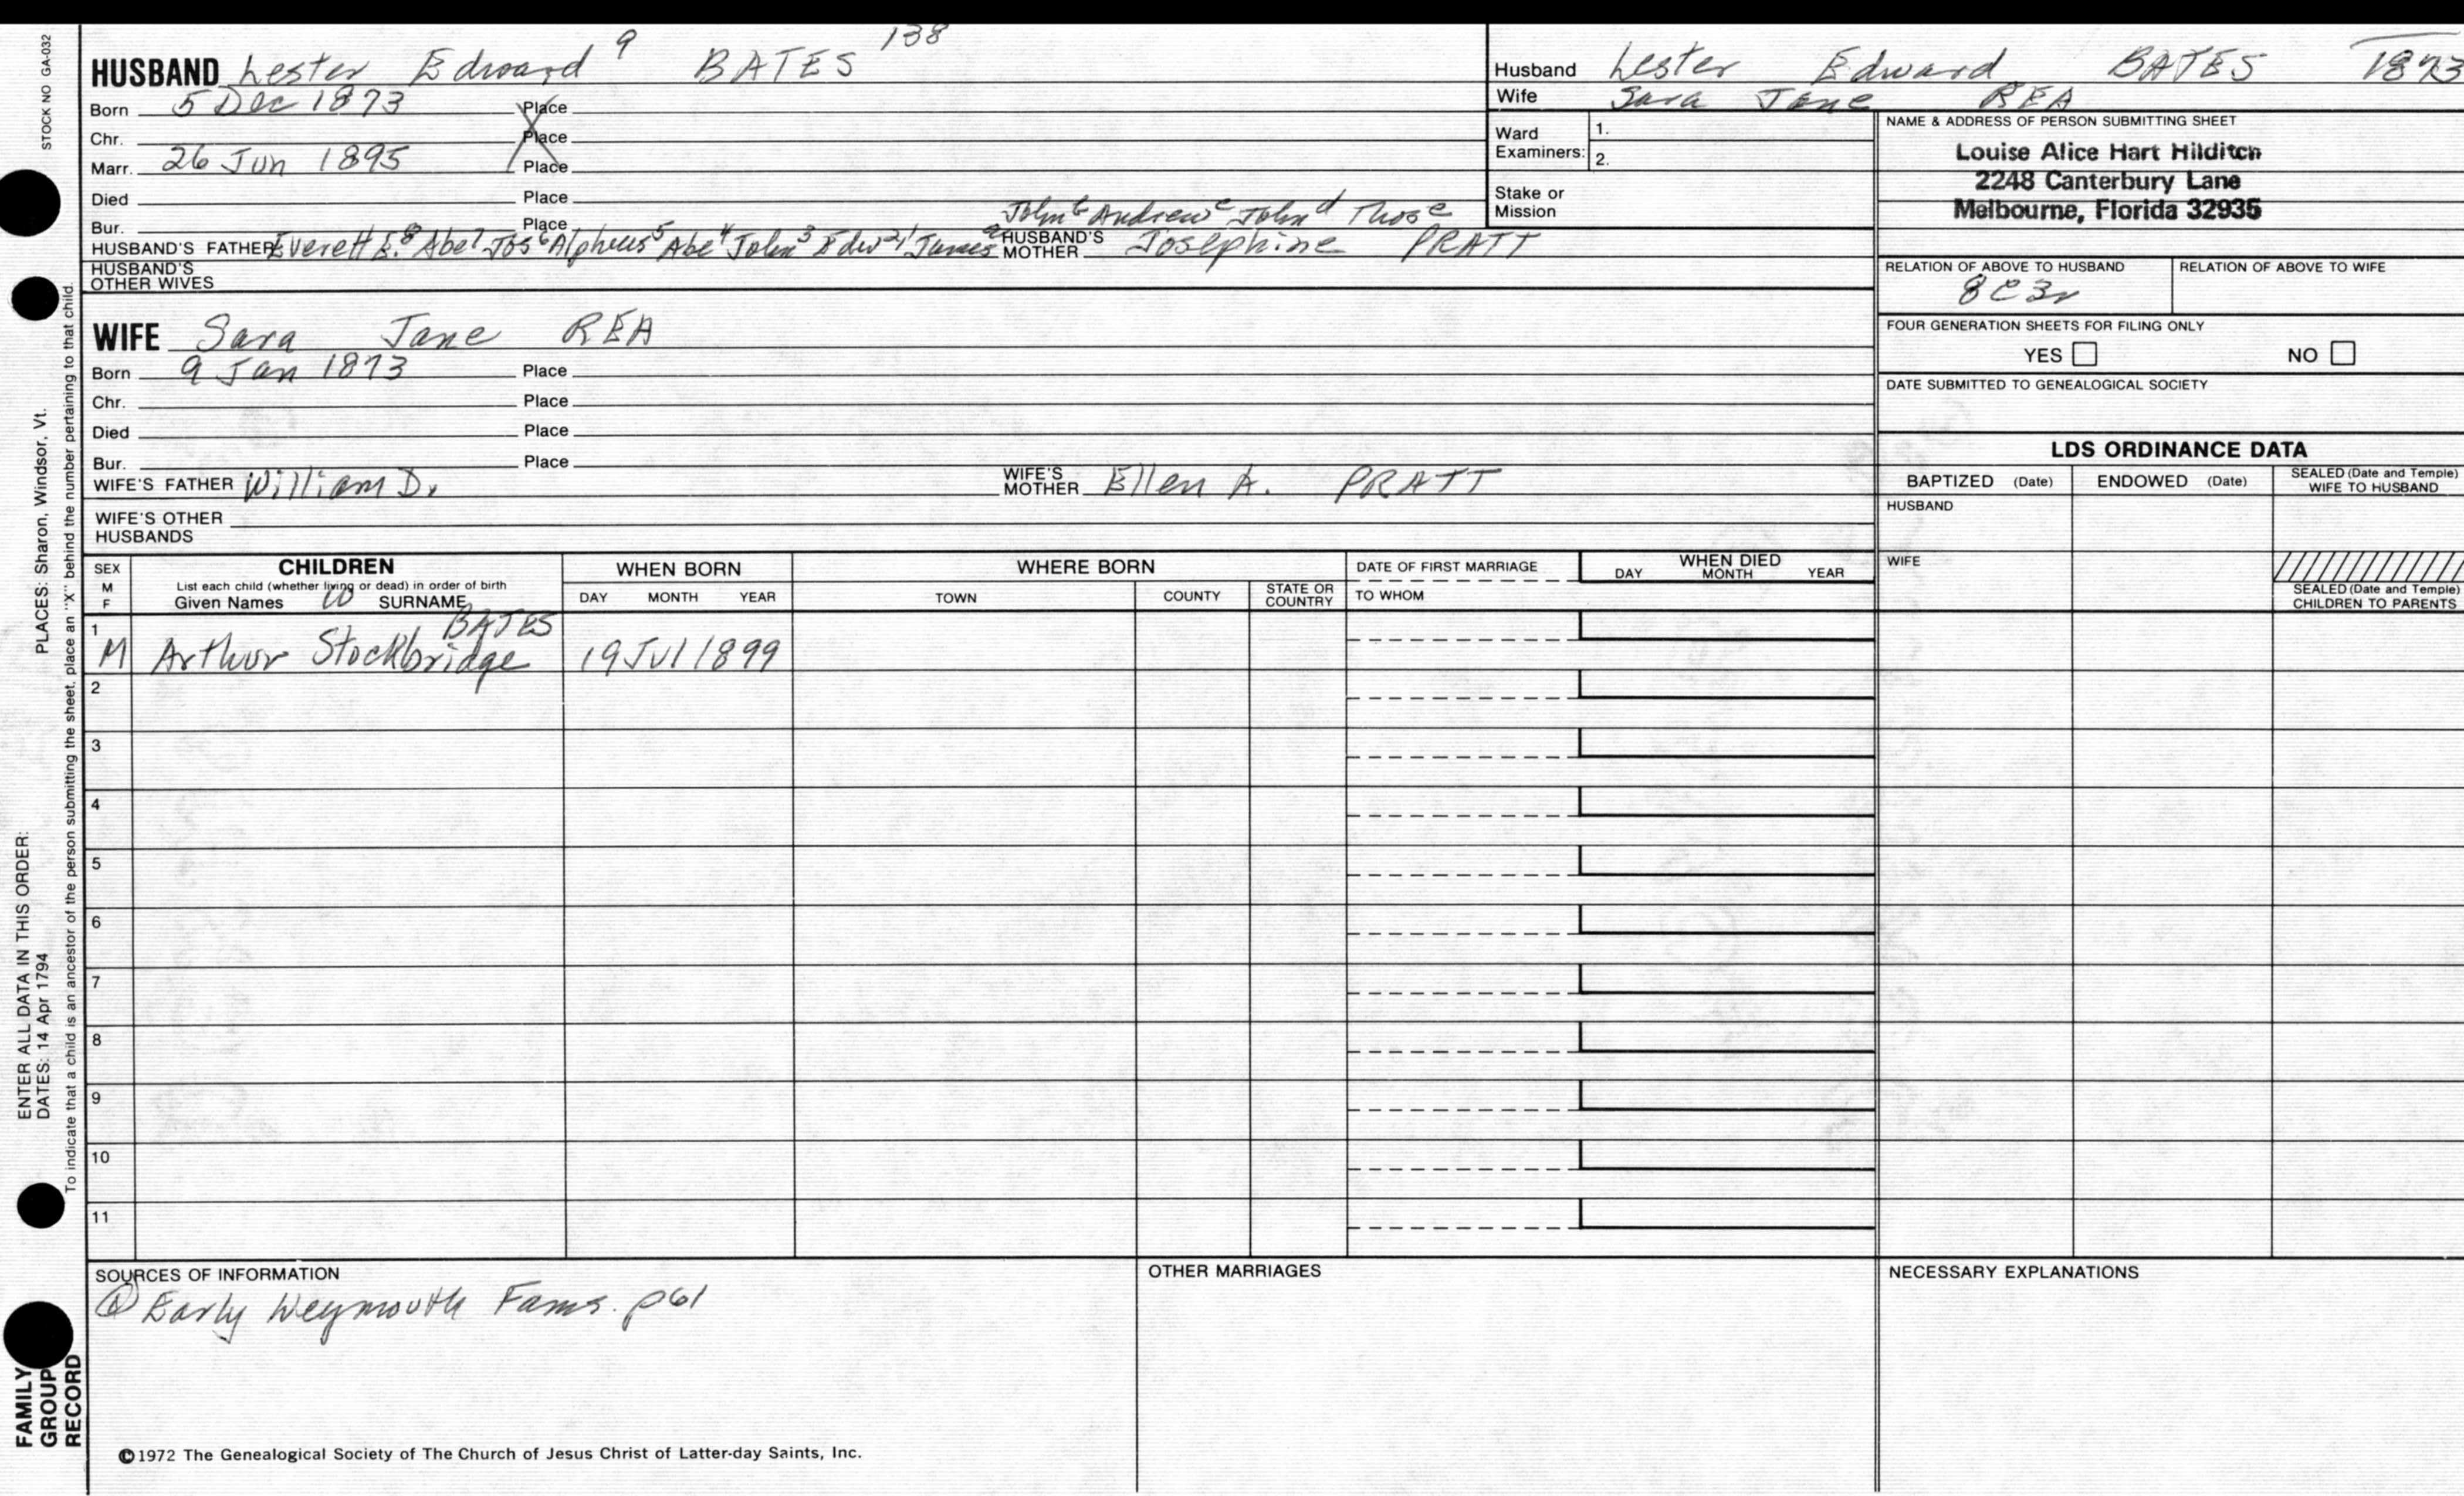 STOCK NO GA-032
HUSBAND Lester Edward 9 BATES 138
Born 5 Dec 1873 Place
Chr. Place
Marr. 26 Jun 1895 Place
Died Place
Bur. Place
John b Andrew c John d Thos e
HUSBAND'S FATHER Everett E. 8 Abe 7 Jos 6 Alpheus 5 Abe 4 John 3 Edw 2 1 James a HUSBAND'S MOTHER Josephine PRATT
HUSBAND'S OTHER WIVES
WIFE Sara Jane REA
Born 9 Jan 1873 Place
Chr. Place
Died Place
Bur. Place
WIFE'S FATHER William D. WIFE'S MOTHER Ellen A. PRATT
WIFE'S OTHER HUSBANDS
Husband Lester Edward BATES 1873
Wife Sara Jane REA
Ward Examiners: 1.
2.
Stake or Mission
NAME & ADDRESS OF PERSON SUBMITTING SHEET
Louise Alice Hart Hilditch
2248 Canterbury Lane
Melbourne, Florida 32935
RELATION OF ABOVE TO HUSBAND RELATION OF ABOVE TO WIFE
8C3r
FOUR GENERATION SHEETS FOR FILING ONLY
YES NO
DATE SUBMITTED TO GENEALOGICAL SOCIETY
LDS ORDINANCE DATA
BAPTIZED (Date) ENDOWED (Date) SEALED (Date and Temple) WIFE TO HUSBAND
HUSBAND
WIFE
SEALED (Date and Temple) CHILDREN TO PARENTS
SEX M F CHILDREN WHEN BORN WHERE BORN DATE OF FIRST MARRIAGE WHEN DIED
List each child (whether living or dead) in order of birth
Given Names 10 SURNAME DAY MONTH YEAR TOWN COUNTY STATE OR COUNTRY TO WHOM DAY MONTH YEAR
BATES
1 M Arthur Stockbridge 19 Jul 1899
2
3
4
5
6
7
8
9
10
11
SOURCES OF INFORMATION OTHER MARRIAGES NECESSARY EXPLANATIONS
@ Early Weymouth Fams. p61
©1972 The Genealogical Society of The Church of Jesus Christ of Latter-day Saints, Inc.
ENTER ALL DATA IN THIS ORDER:
DATES: 14 Apr 1794 PLACES: Sharon, Windsor, Vt.
To indicate that a child is an ancestor of the person submitting the sheet, place an "X" behind the number pertaining to that child.
FAMILY
GROUP
RECORD